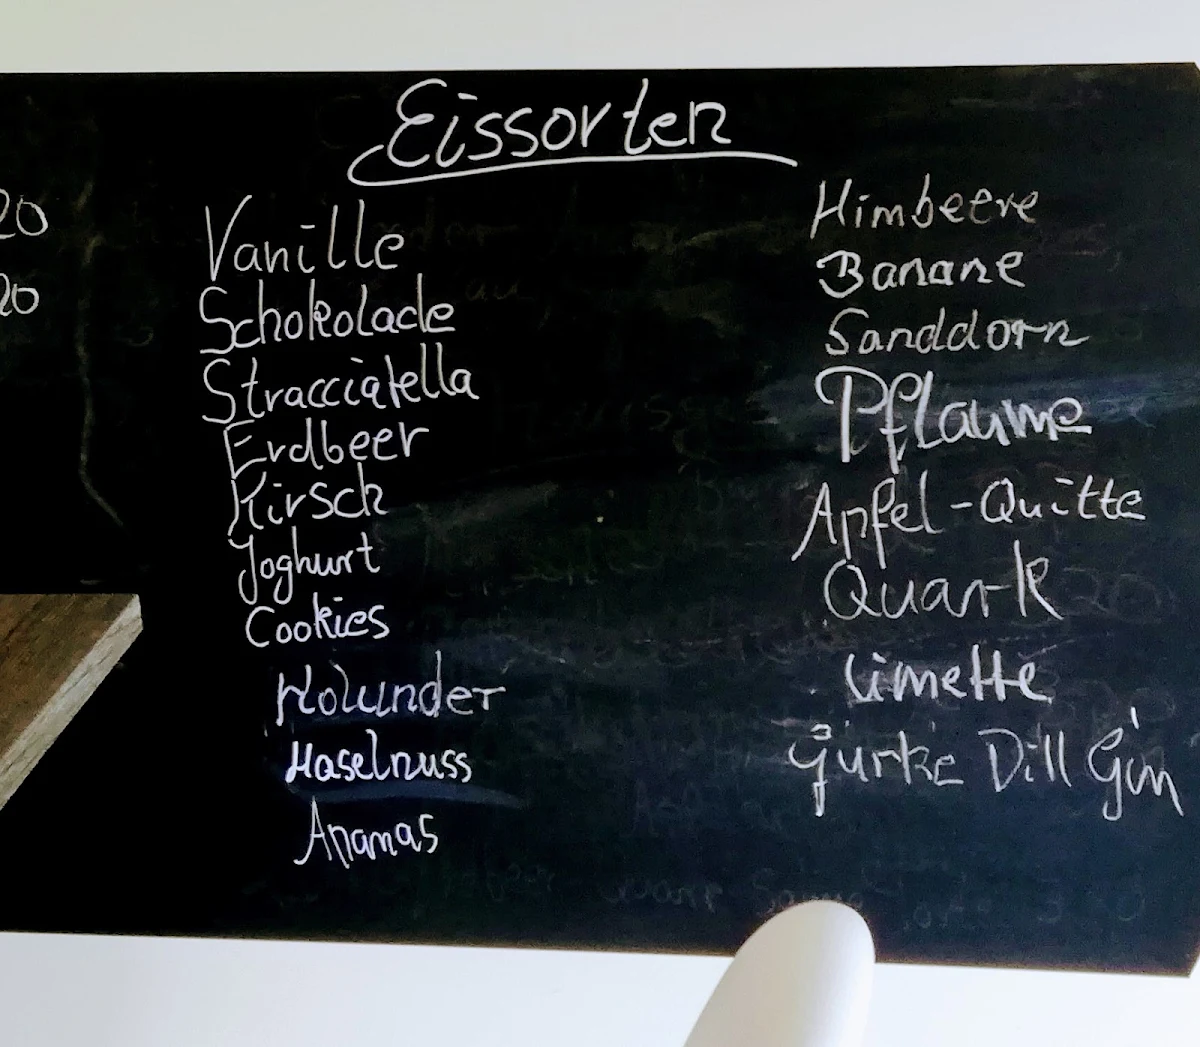 Eissorten
20
20
Vanille
Schokolade
Stracciatella
Erdbeer
Kirsch
Joghurt
Cookies
Holunder
Haselnuss
Ananas
Himbeere
Banane
Sanddorn
Pflaume
Apfel-Quitte
Quark
Limette
Gurke Dill Gin